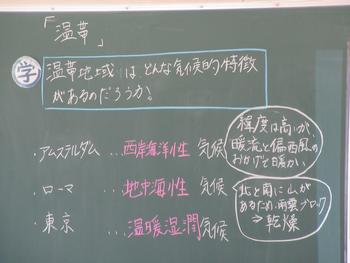 「温帯」
学
温帯地域はどんな気候的特徴
があるのだろうか?
・アムステルダム …西岸海洋性 気候
緯度は高いが、
暖流と偏西風の
おかげで暖かい。
・ローマ …地中海性 気候
北と南に山が
あるため、雨雲ブロック
⇒乾燥
・東京 …温暖湿潤気候